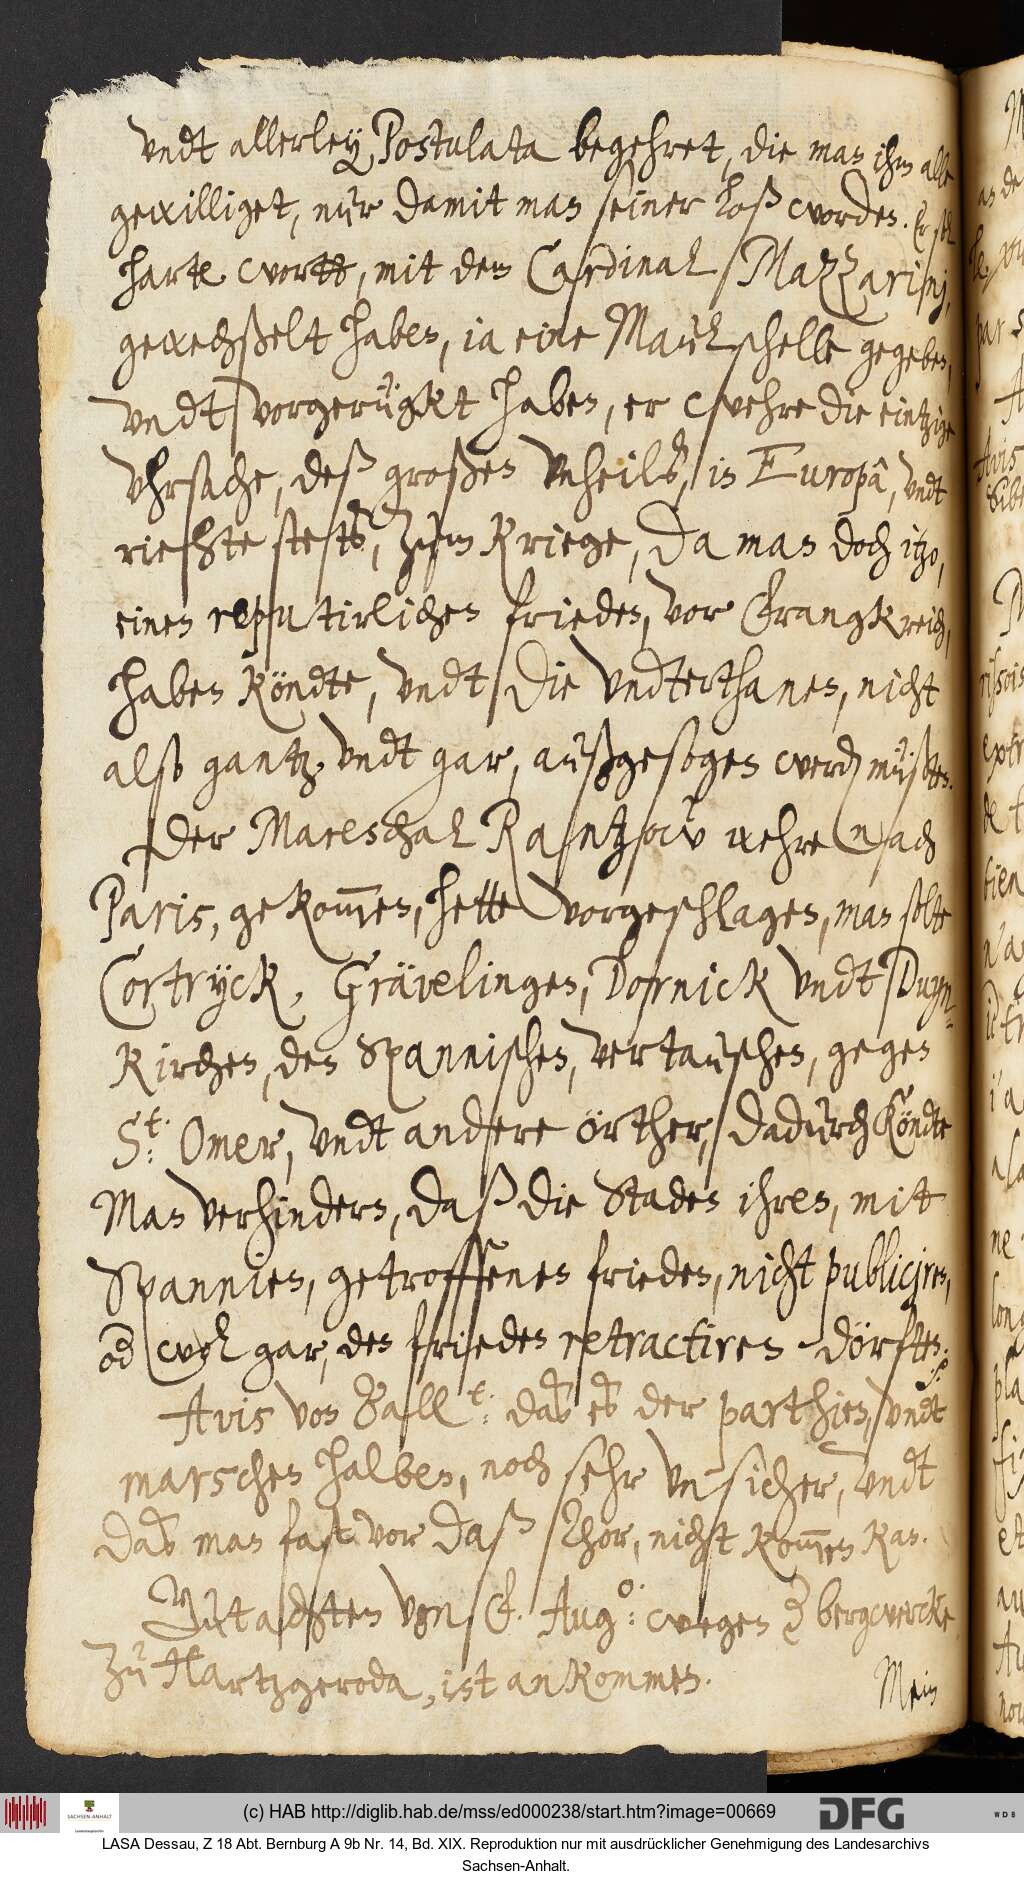 vndt allerley Postulata begehret, die man ihm alle
gewilliget, nur damit man seiner loß worden. Er sol
harte wortt, mit dem Cardinal Mazzarinj,
gewechßelt haben, ia eine Maulschelle gegeben,
vndt vorgerügkt haben, er wehre die eintzige
Vhrsache, deß großen Vnheilß, in Europâ, vndt
riehte stets, zum Kriege, da man doch itzo,
einen reputirlichen frieden, vor Frangkreich,
haben köndte, vndt die Vndterthanen, nicht
also gantz vndt gar, außgesogen werden müßten.
Der Mareschal Rantzow wehre nach
Paris, gekommen, hette vorgeschlagen, man solte
Cortryck, Grävelingen, Dornick vndt Duyn-
kirchen, den Spannischen, vertauschen, gegen
St: Omer, vndt andere örther, dadurch köndte
Man verhindern, daß die Staden ihren, mit
Spannien, getroffenen frieden, nicht publiciren,
od wol gar, den frieden retractiren dörften.
Avis von Ballt: das es der parthien, vndt
marschen halben, noch sehr vnsicher, vndt
das man fast vor daß Thor, nicht kommen kan.
Gutachten von F. Augo: wegen der bergwercke
zu Hartzgeroda, ist ankommen.
Mein
(c) HAB http://diglib.hab.de/mss/ed000238/start.htm?image=00669
SACHSEN-ANHALT
DFG
WDB
LASA Dessau, Z 18 Abt. Bernburg A 9b Nr. 14, Bd. XIX. Reproduktion nur mit ausdrücklicher Genehmigung des Landesarchivs
Sachsen-Anhalt.